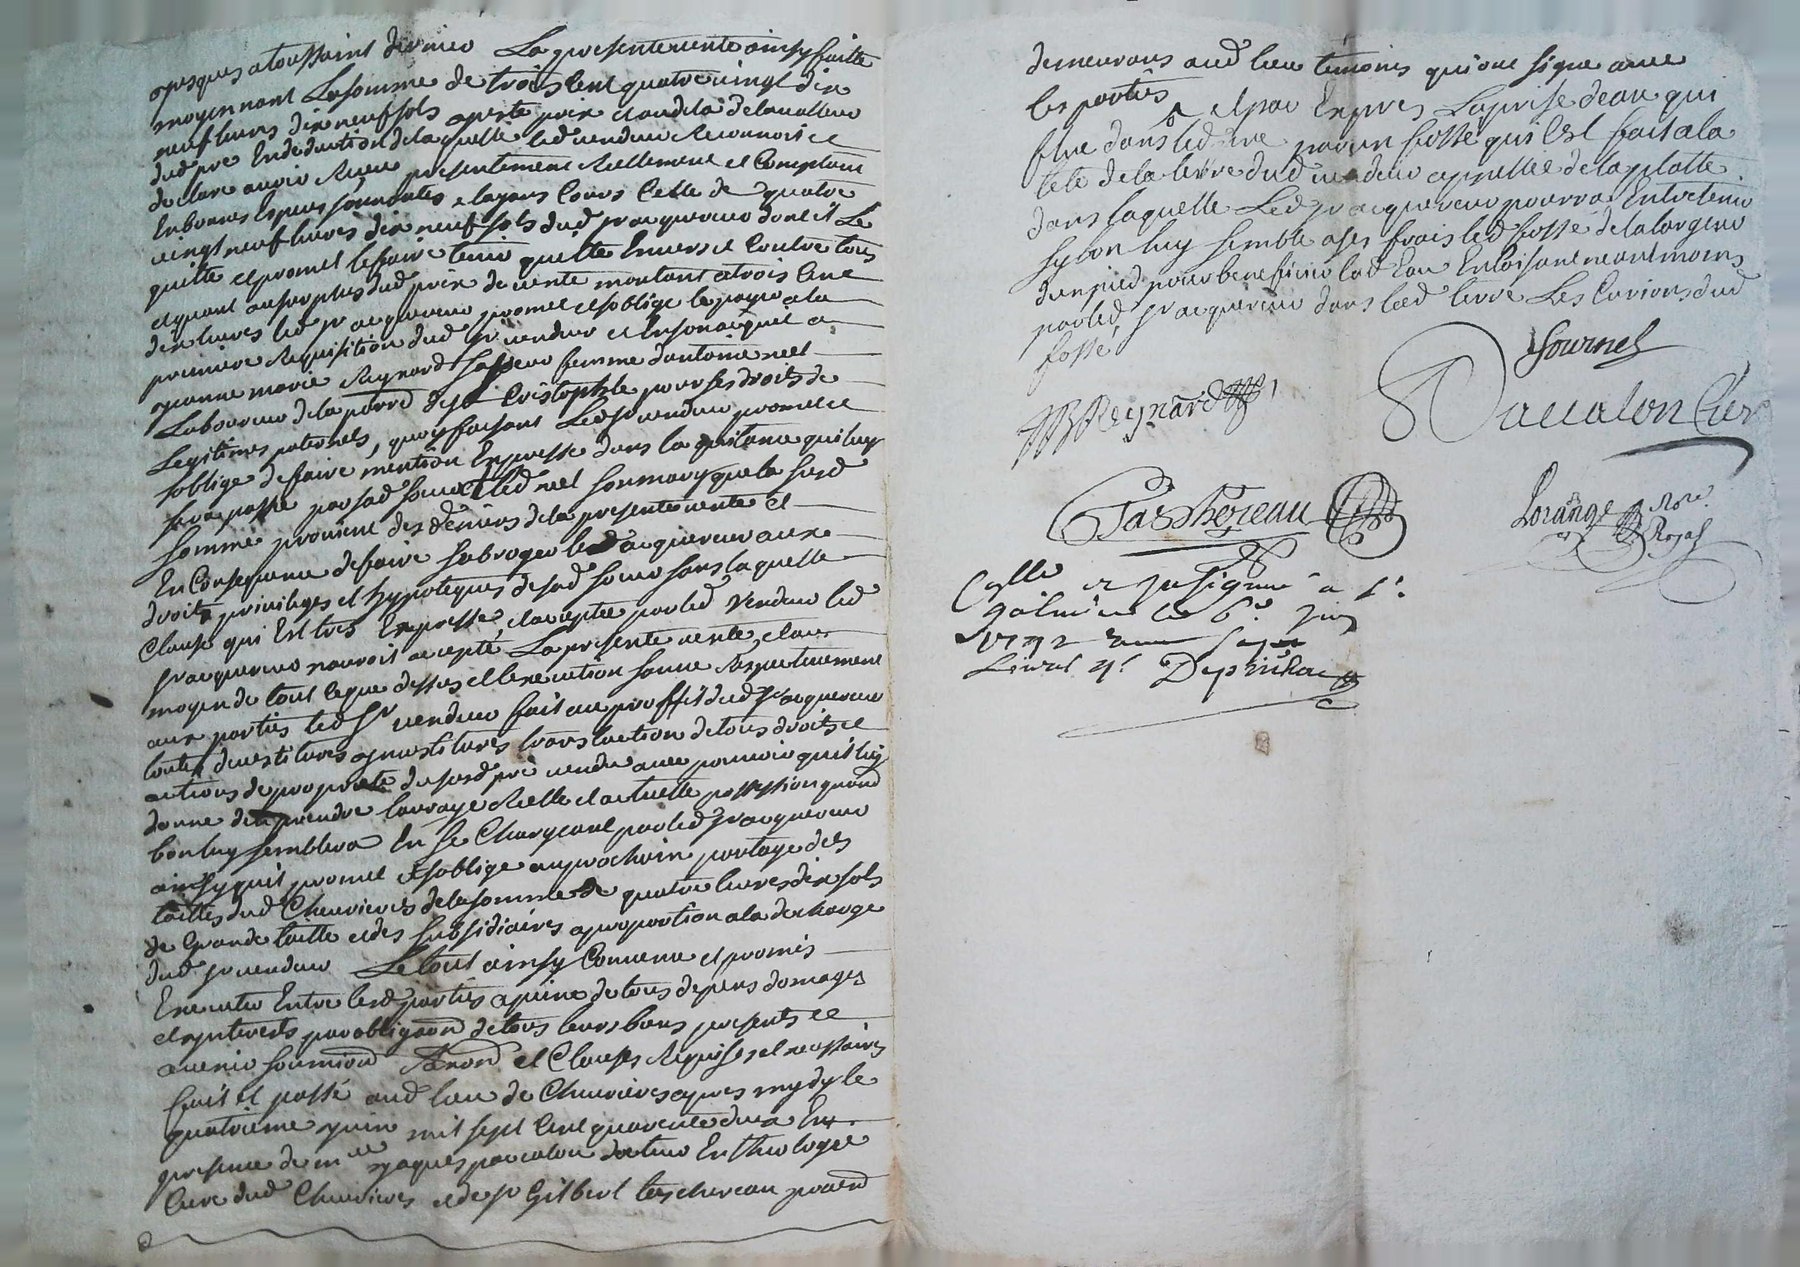 apres a toussaint dernier La presente vente ainsy faitte
moyennant La somme de trois cent quatre vingt dix
neuf livres dix neuf sols aperte prix et audela de la valleur
dud pre En deduction de laquelle led vendeur Reconnoit et
declare avoir Receu presentement Reellement et Comptant
En bonnes Especes sonnantes et ayans Cours Celle de quatre
vingt neuf livres dix neuf sols dud sr acquereur dont il Le
quitte et promet le faire tenir quitte Envers et Contre tous
et quant au surplus dud prix de vente montant a trois Cent
dix livres led sr acquereur promet et soblige le payer a la
premiere Requisition dud sr vendeur et En son acquit a
jeanne marie Reynard sa soeur femme dantoine neel
Laboureur de la parr de st Cristophle pour ses droits de
Legitimes paternels, quoy faisant Led sr vendeur promet et
soblige de faire mention Expresse dans la quitance qui luy
sera passé par sad soeur et led neel son mary que la susd
somme provient des deniers de la presente vente et
En Consequence de faire subroger led acquereur aux
droits privileges et hypoteques de sad soeur sans laquelle
Clause qui Est tres Expresse, et acceptée par led vendeur led
sr acquereur nauroit accepté La presente vente, et au
moyen de tout ce que dessus et l'execution sauve Respectivement
aux parties led sr vendeur fait au proffit dud sr acquereur
toutes devestitures ynvestitures translaction de tous droits et
actions de propriete du susd pré vendu avec pouvoir quil luy
donne den prendre la vraye Reelle et actuelle possession quand
bon luy semblera En se Chargeant par led sr acquereur
ainsy quil promet et soblige au prochain partage des
tailles dud Chevrieres de la somme de quatre livres dix sols
de Grande taille et des subsidiaires a proportion a la decharge
dud sr vendeur Le tout ainsy Convenu et promis
Executer Entre lesd parties a peine de tous depens domages
et ynterets par obligaon de tous leurs biens presents et
avenir soumiond Renond et Clauses Requises et necessaires
fait et passé aud lieu de Chevrieres apres mydy le
quatrieme juin mil sept cent quarente deux En
presence de mre jaques paccalon docteur En theologie
Curé dud Chevrieres et de sr Gilbert taschereau praed
demeurans aud lieu temoins qui ont signe avec
les parties
et par Expres La prise deau qui
flue dans led pre par un fossé qui Est fait a la
tete de la terre dud vendeur appellée de la platte
dans laquelle Led sr acquereur pourra Entretenir
sy bon luy semble a ses frais led fossé de la largeur
dun pied pour beneficier lad Eau En laissant neantmoins
par led sr acquereur dans lad terre Les Curions dud
fossé
fournel
Reynard
Paccalon Curé
Taschereau
Lorange Nore
Royal
Collé et signé a St
galmier le 6e juin
1742
Depinhac